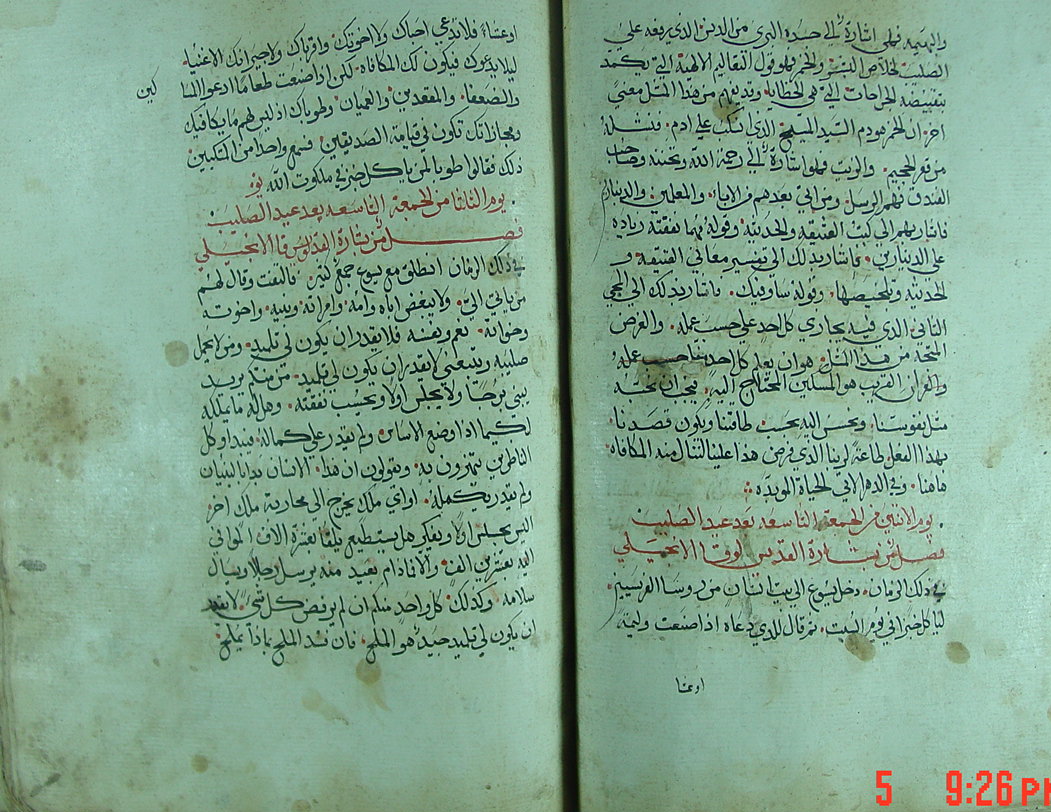 والبهيمه فهي اشارة الي جسده البري من الدنس الذي رفعه علي
الصليب لخلاص البشر والخمر فهو قول التعاليم الالهية التي يضمد
بتبييضه الجراحات التي هي الخطايا وقد يفهم من هذا المثل معني
اخر ان الخمر هو دم السيد المسيح الذي انسكب علي ادم فنشله
من قعر الجحيم والزيت فهو اشارة الي رحمة الله ومحبته وصاحب
الفندق فهم الرسل ومن اتي بعدهم من الاباء والمعلمين والدينار
فاشار بهم الي كتب العتيقه والحديثه وقوله مهما نفقته زياده
علي الدينارين فاشار بذلك الي تفسير معاني العتيقه و
الحديثه وتلخيصها وقوله ساوفيك فاشار بذلك الي المجي
الثاني الذي فيه يجازي كل احد علي حسب عمله والغرض
المتجه من هذا المثل هو ان يعلم كل احد منا حسب عمله و
والغرض ان القريب هو المسكين المحتاج اليه فيجب ان نحبه
مثل نفوسنا ونحسن اليه بحسب طاقتنا ويكون قصدنا
بهذا الفعل طاعة لربنا الذي فرض هذا علينا لننال منه المكافاه
هاهنا وفي الدهر الاتي الحياة الموبده
يوم الاثنين من الجمعة التاسعه بعد عيد الصليب
فصل من بشارة القديس لوقا الانجيلي
في ذلك الزمان دخل يسوع الي بيت انسان من روسا الفريسيين
لياكل خبزا في يوم السبت ثم قال للذي دعاه اذا صنعت وليمة
او عشا
او عشاء فلا تدعي احباك ولا اخوتك واقرباك ولا جيرانك الاغنياء
ليلا يدعوك فيكون لك المكافاه لكن اذا صنعت طعاما ادعو المسا
كين
والضعفا والمقعدين والعميان وطوباك اذ ليس لهم ما يكافيك
ومجازاتك تكون في قيامة الصديقين فسمع واحد من المتكيين
ذلك فقال له طوبا لمن ياكل خبز في ملكوت الله
يوم الثلثا من الجمعة التاسعه بعد عيد الصليب
فصل من بشارة القديس لوقا الانجيلي
في ذلك الزمان انطلق مع يسوع جمع كثير فالتفت وقال لهم
من ياتي الي ولا يبغض اباه وامه وامراته وبنيه واخوته
وخواته نعم ونفسه فلا يقدر ان يكون لي تلميد ومن لا يحمل
صليبه ويتبعني لا يقدر ان يكون لي تلميد من منكم يريد
يبني برجا ولا يجلس اولا ويحسب نفقته وهل له ما يملكه
لكيما اذا وضع الاساس ولم يقدر علي كماله فيبداو كل
الناظرين يستهزون به ويقولون ان هذا الانسان بدا بالبنيان
ولم يقدر يكمله او اي ملك يخرج الي محاربة ملك اخر
اليس يجلس اولا ويفكر هل يستطيع يلقا بعشرة الاف الموافي
اليه بعشرين الف والا فما دام بعيد منه يرسل رجلا ويسال
سلامه وكذلك كل واحد منكم ان لم يرفض كل شي لا يقدر
ان يكون لي تلميد جيد هو الملح فان فسد الملح بماذا يملح
5 9:26 PM